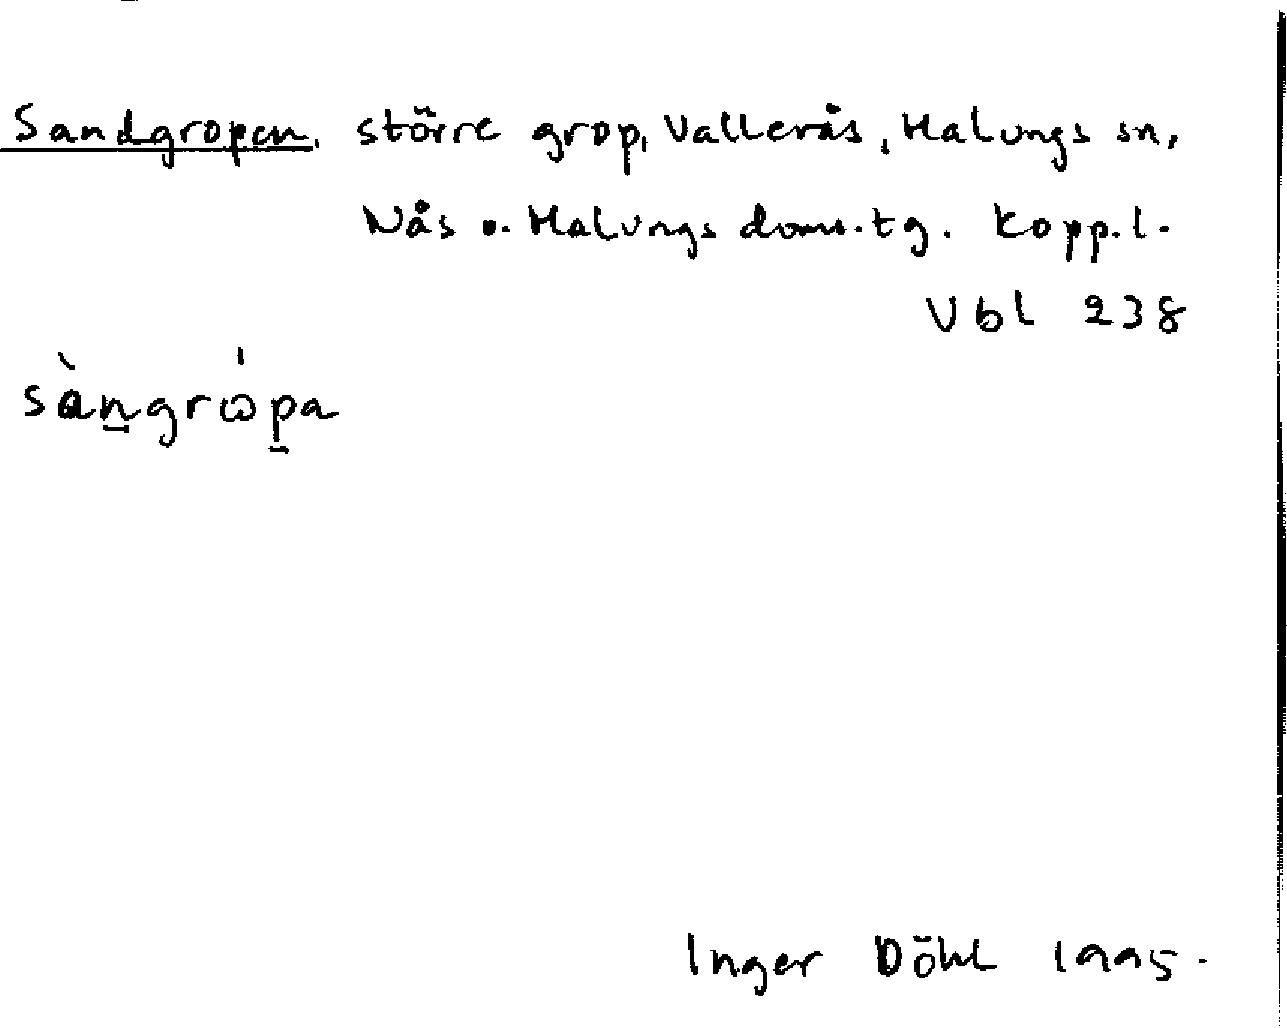 Sandgropen, större grop, Vallerås, Malungs sn,
Nås o. Malungs doms.tg. Kopp.l.
Vbl 238
sàngrώpa
Inger Döhl 1995.